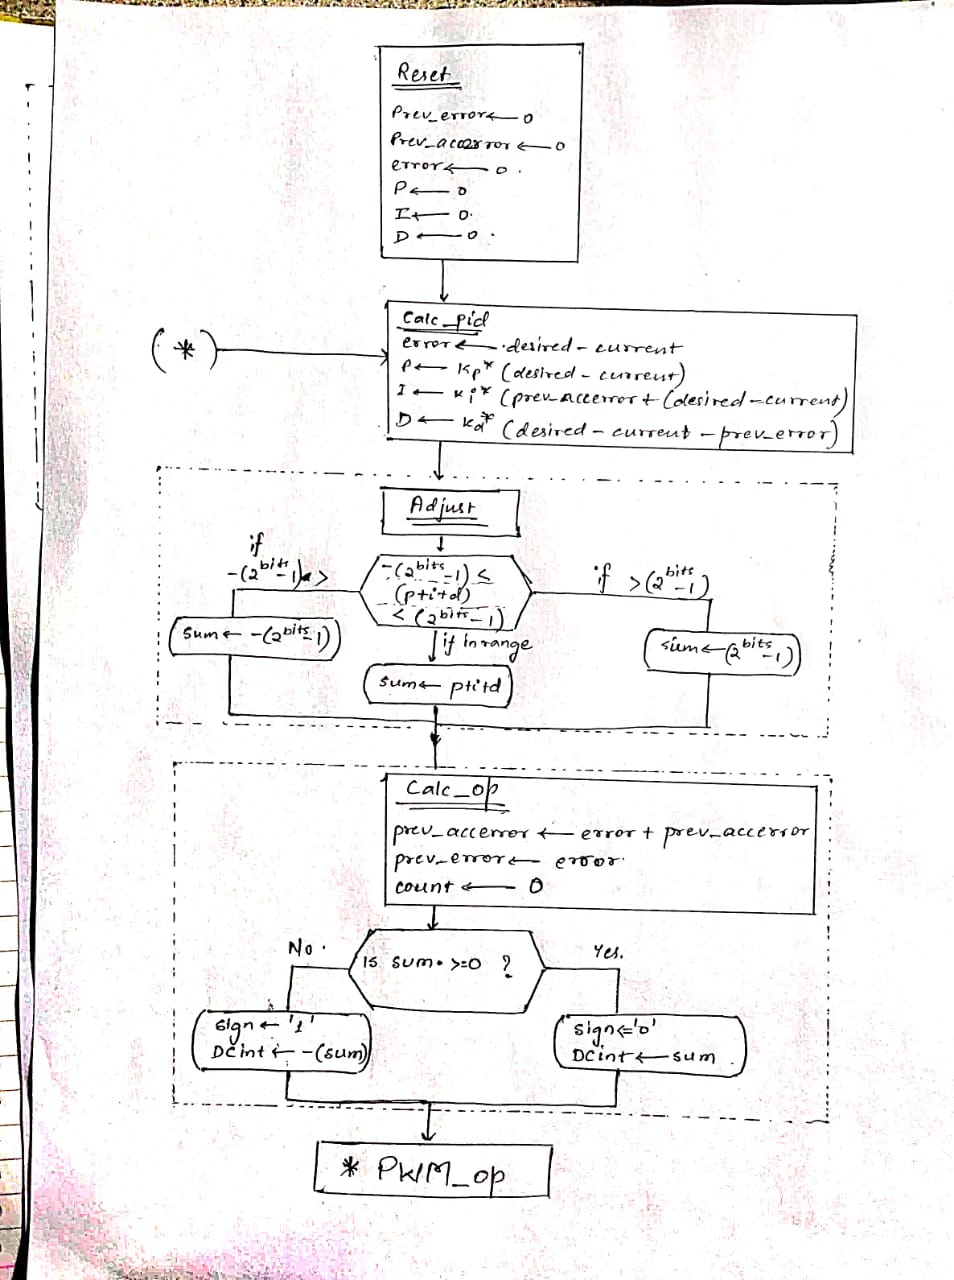 Reset
Prev_error ← 0
Prev_accerror ← 0
error ← 0.
P ← 0
I ← 0.
D ← 0.
Calc_pid
(*)
error ← desired - current
P ← Kp* (desired - current)
I ← Ki* (prev_accerror + (desired - current)
D ← Kd* (desired - current - prev_error)
Adjust
if
-(2^bits - 1) >
-(2^bits - 1) ≤
(p+i+d)
< (2^bits - 1)
if > (2^bits - 1)
sum ← -(2^bits - 1)
if in range
sum ← (2^bits - 1)
sum ← p+i+d
Calc_op
prev_accerror ← error + prev_accerror
prev_error ← error.
count ← 0
No.
Is sum >=0 ?
Yes.
Sign ← '1'
DCint ← -(sum)
Sign ← '0'
DCint ← sum.
* PWM_op